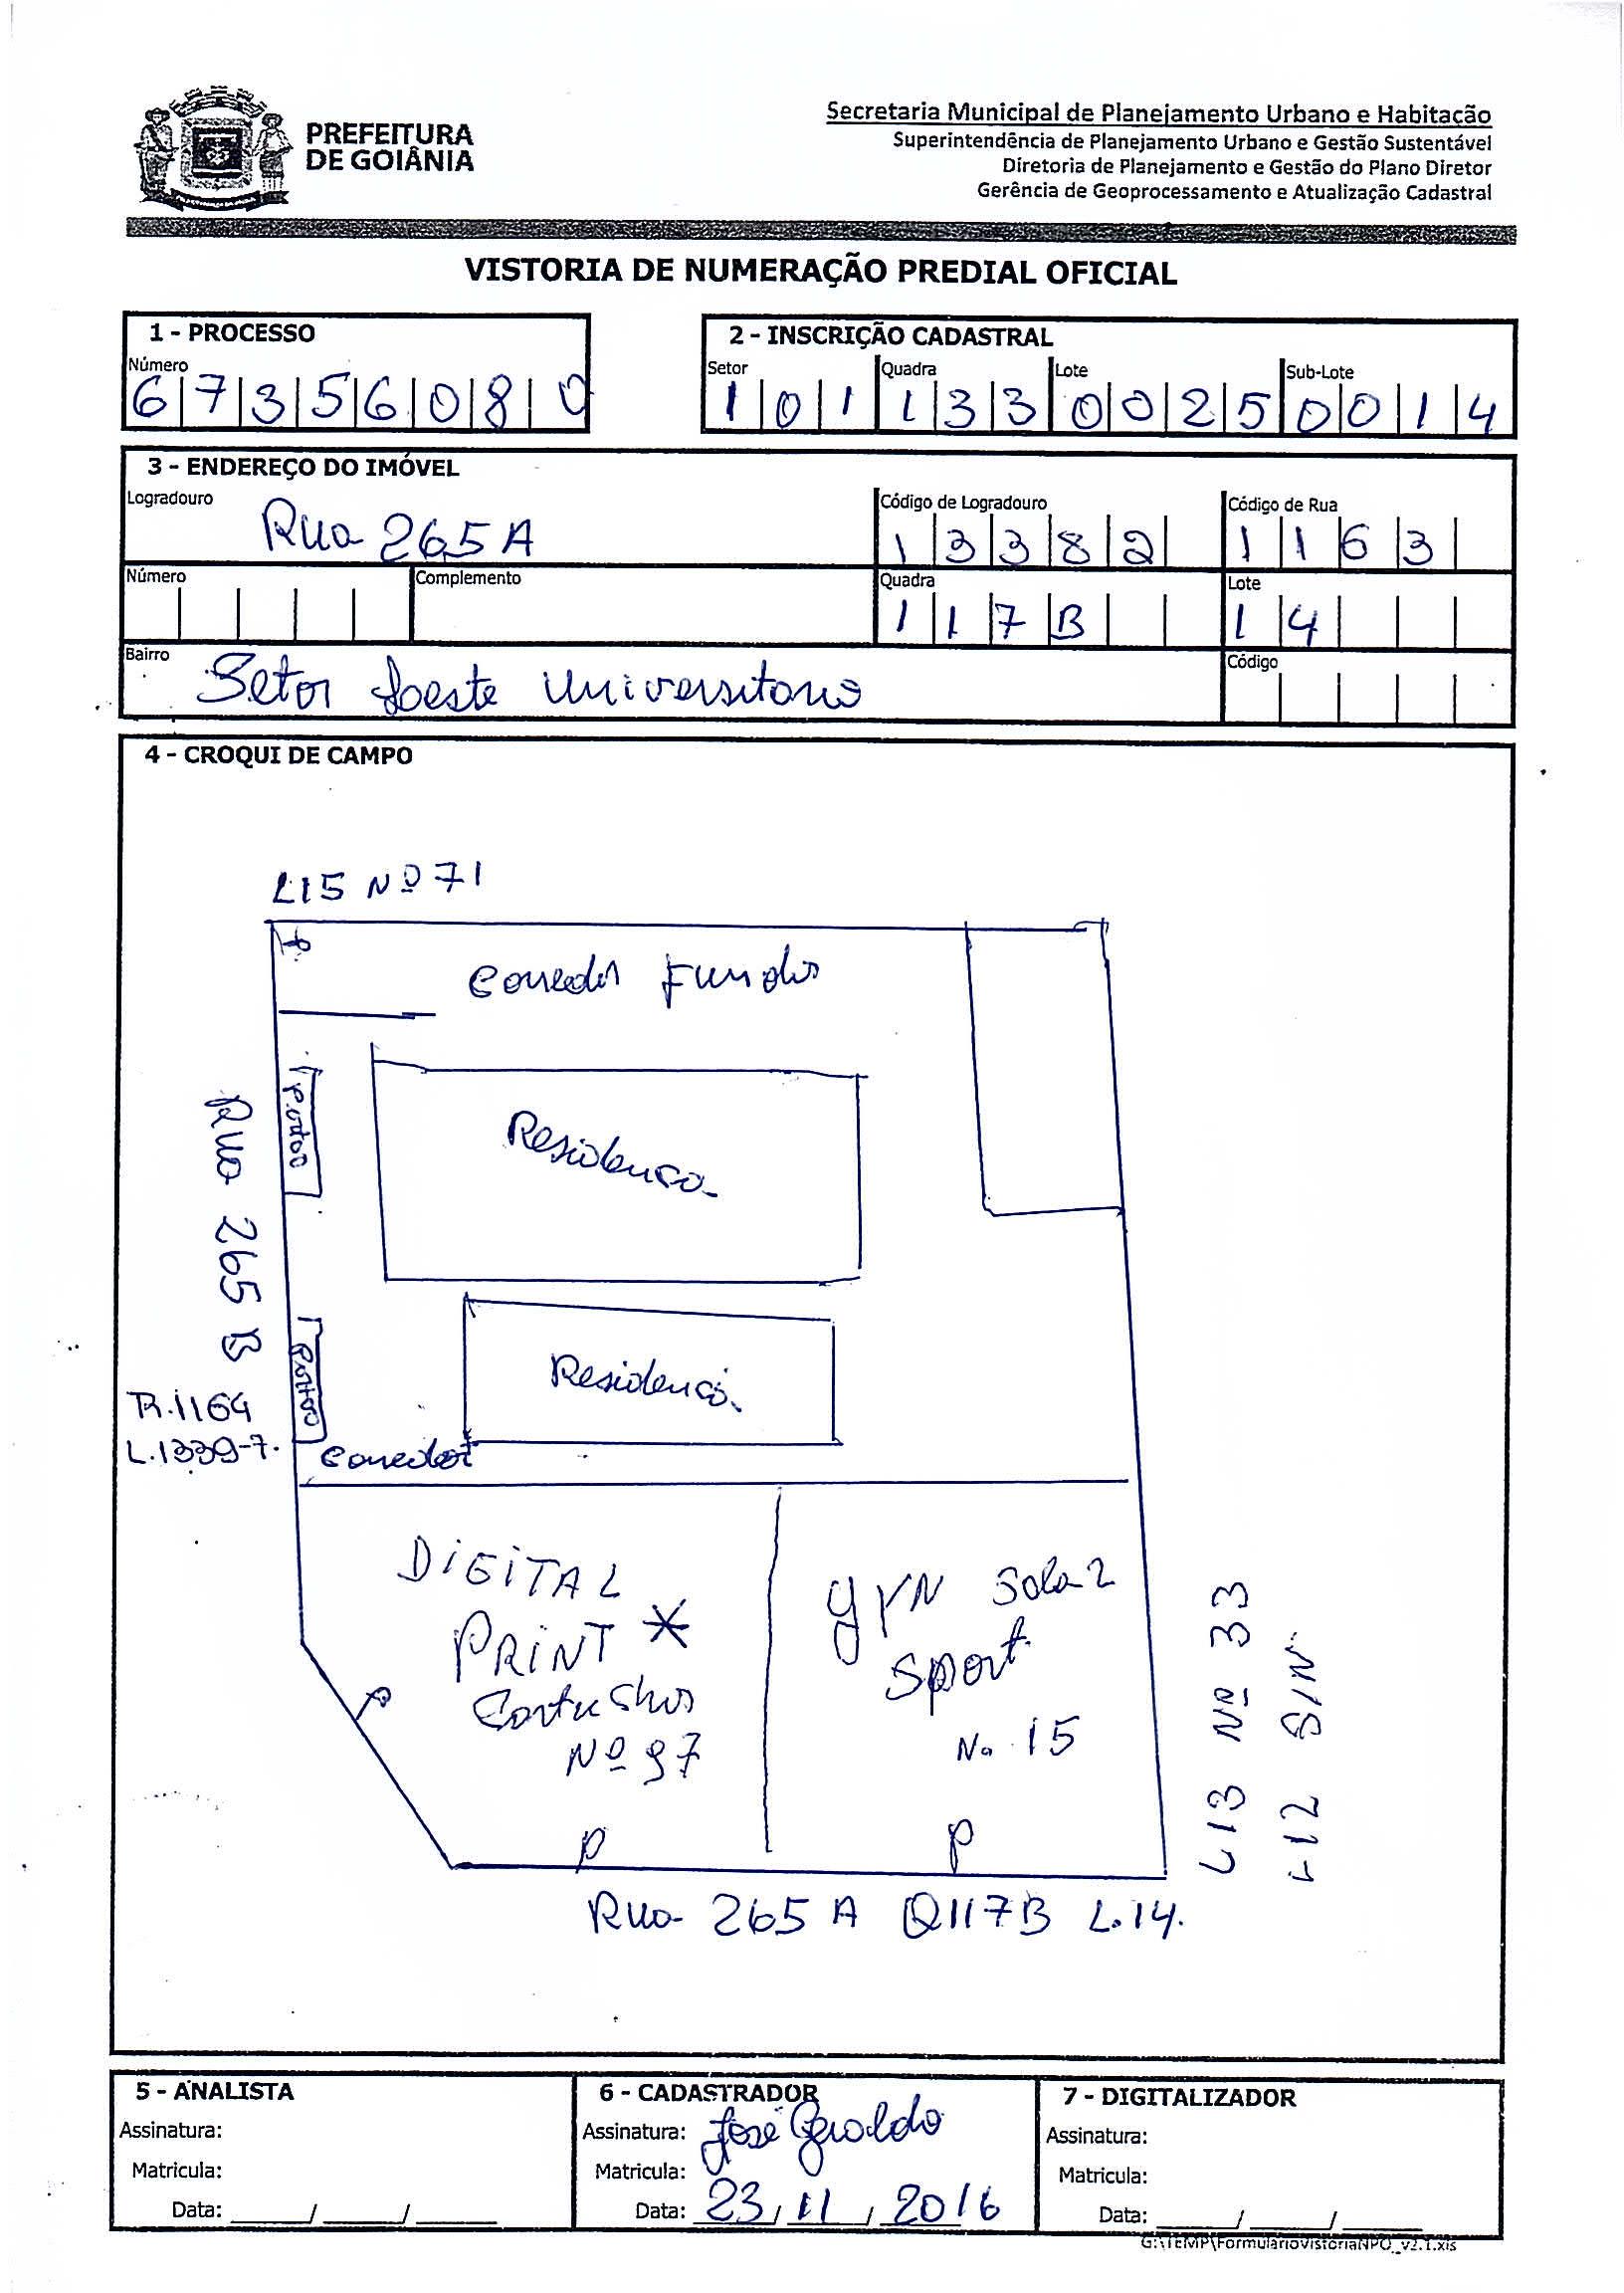 PREFEITURA
DE GOIÂNIA
Secretaria Municipal de Planejamento Urbano e Habitação
Superintendência de Planejamento Urbano e Gestão Sustentável
Diretoria de Planejamento e Gestão do Plano Diretor
Gerência de Geoprocessamento e Atualização Cadastral
VISTORIA DE NUMERAÇÃO PREDIAL OFICIAL
1 - PROCESSO
Número
6 7 3 5 6 0 8 0
2 - INSCRIÇÃO CADASTRAL
Setor Quadra Lote Sub-Lote
1 0 1 1 3 3 0 0 2 5 0 0 1 4
3 - ENDEREÇO DO IMÓVEL
Logradouro Código de Logradouro Código de Rua
Rua 265 A 1 3 3 8 2 1 1 6 3
Número Complemento Quadra Lote
1 1 7 B 1 4
Bairro Código
Setor Leste Universitario
4 - CROQUI DE CAMPO
L15 Nº 71
P
Corredor Fundos
Portao
Residencia
Rua 265 B
Portao
Residencia
R.1164
L.1339-7.
Corredor
DIGITAL
PRINT *
Cartuchos
Nº 97
GYN Sala 2
Sport
No 15
P
P
P
L13 Nº 33
L12 S/N
Rua 265 A Q117B L.14.
5 - ANALISTA
Assinatura:
Matricula:
Data: ____/____/____
6 - CADASTRADOR
Assinatura: José Geraldo
Matricula:
Data: 23/11/2016
7 - DIGITALIZADOR
Assinatura:
Matricula:
Data: ____/____/____
G:\TEMP\FormularioVistoriaNPO_v2.1.xls